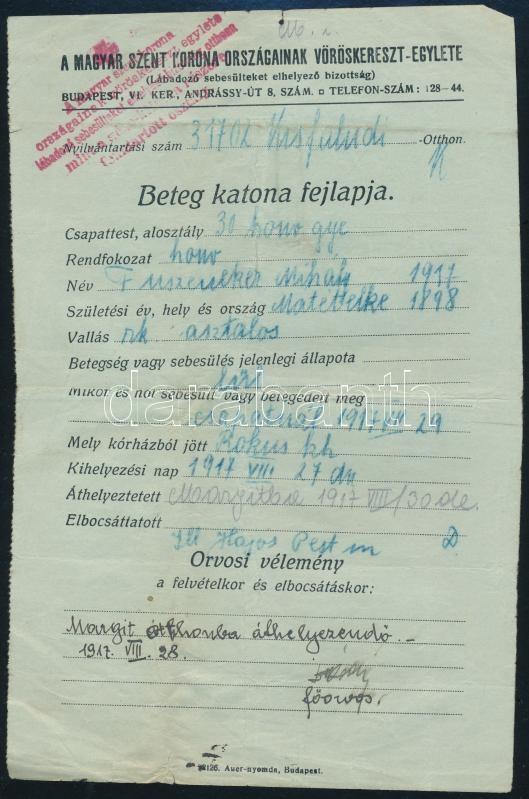 A magyar szent korona
országainak vöröskereszt egylete
A MAGYAR SZENT KORONA ORSZÁGAINAK VÖRÖSKERESZT-EGYLETE
(Lábadozó sebesülteket elhelyező bizottság)
BUDAPEST, VI. KER., ANDRÁSSY-ÚT 8, SZÁM. □ TELEFON-SZÁM: 128-44.
Nyilvántartási szám 31702 Kisfaludi -Otthon.
Beteg katona fejlapja.
Csapattest, alosztály 30 honv gye
Rendfokozat honv
Név Mihály 1917
Születési év, hely és ország Matetelke 1898
Vallás rk asztalos
Betegség vagy sebesülés jelenlegi állapota
Mikor és hol sebesült vagy betegedett meg
1917 VII 29
Mely kórházból jött Rokus kh
Kihelyezési nap 1917 VIII. 27 du
Áthelyeztetett Margitba 1917 VIII/30 de.
Elbocsáttatott
Ill Hajos Pest m
Orvosi vélemény
a felvételkor és elbocsátáskor:
Margit otthonba áthelyezendő. –
1917. VIII. 28.
főorvos.
Auer-nyomda, Budapest.
darabanth